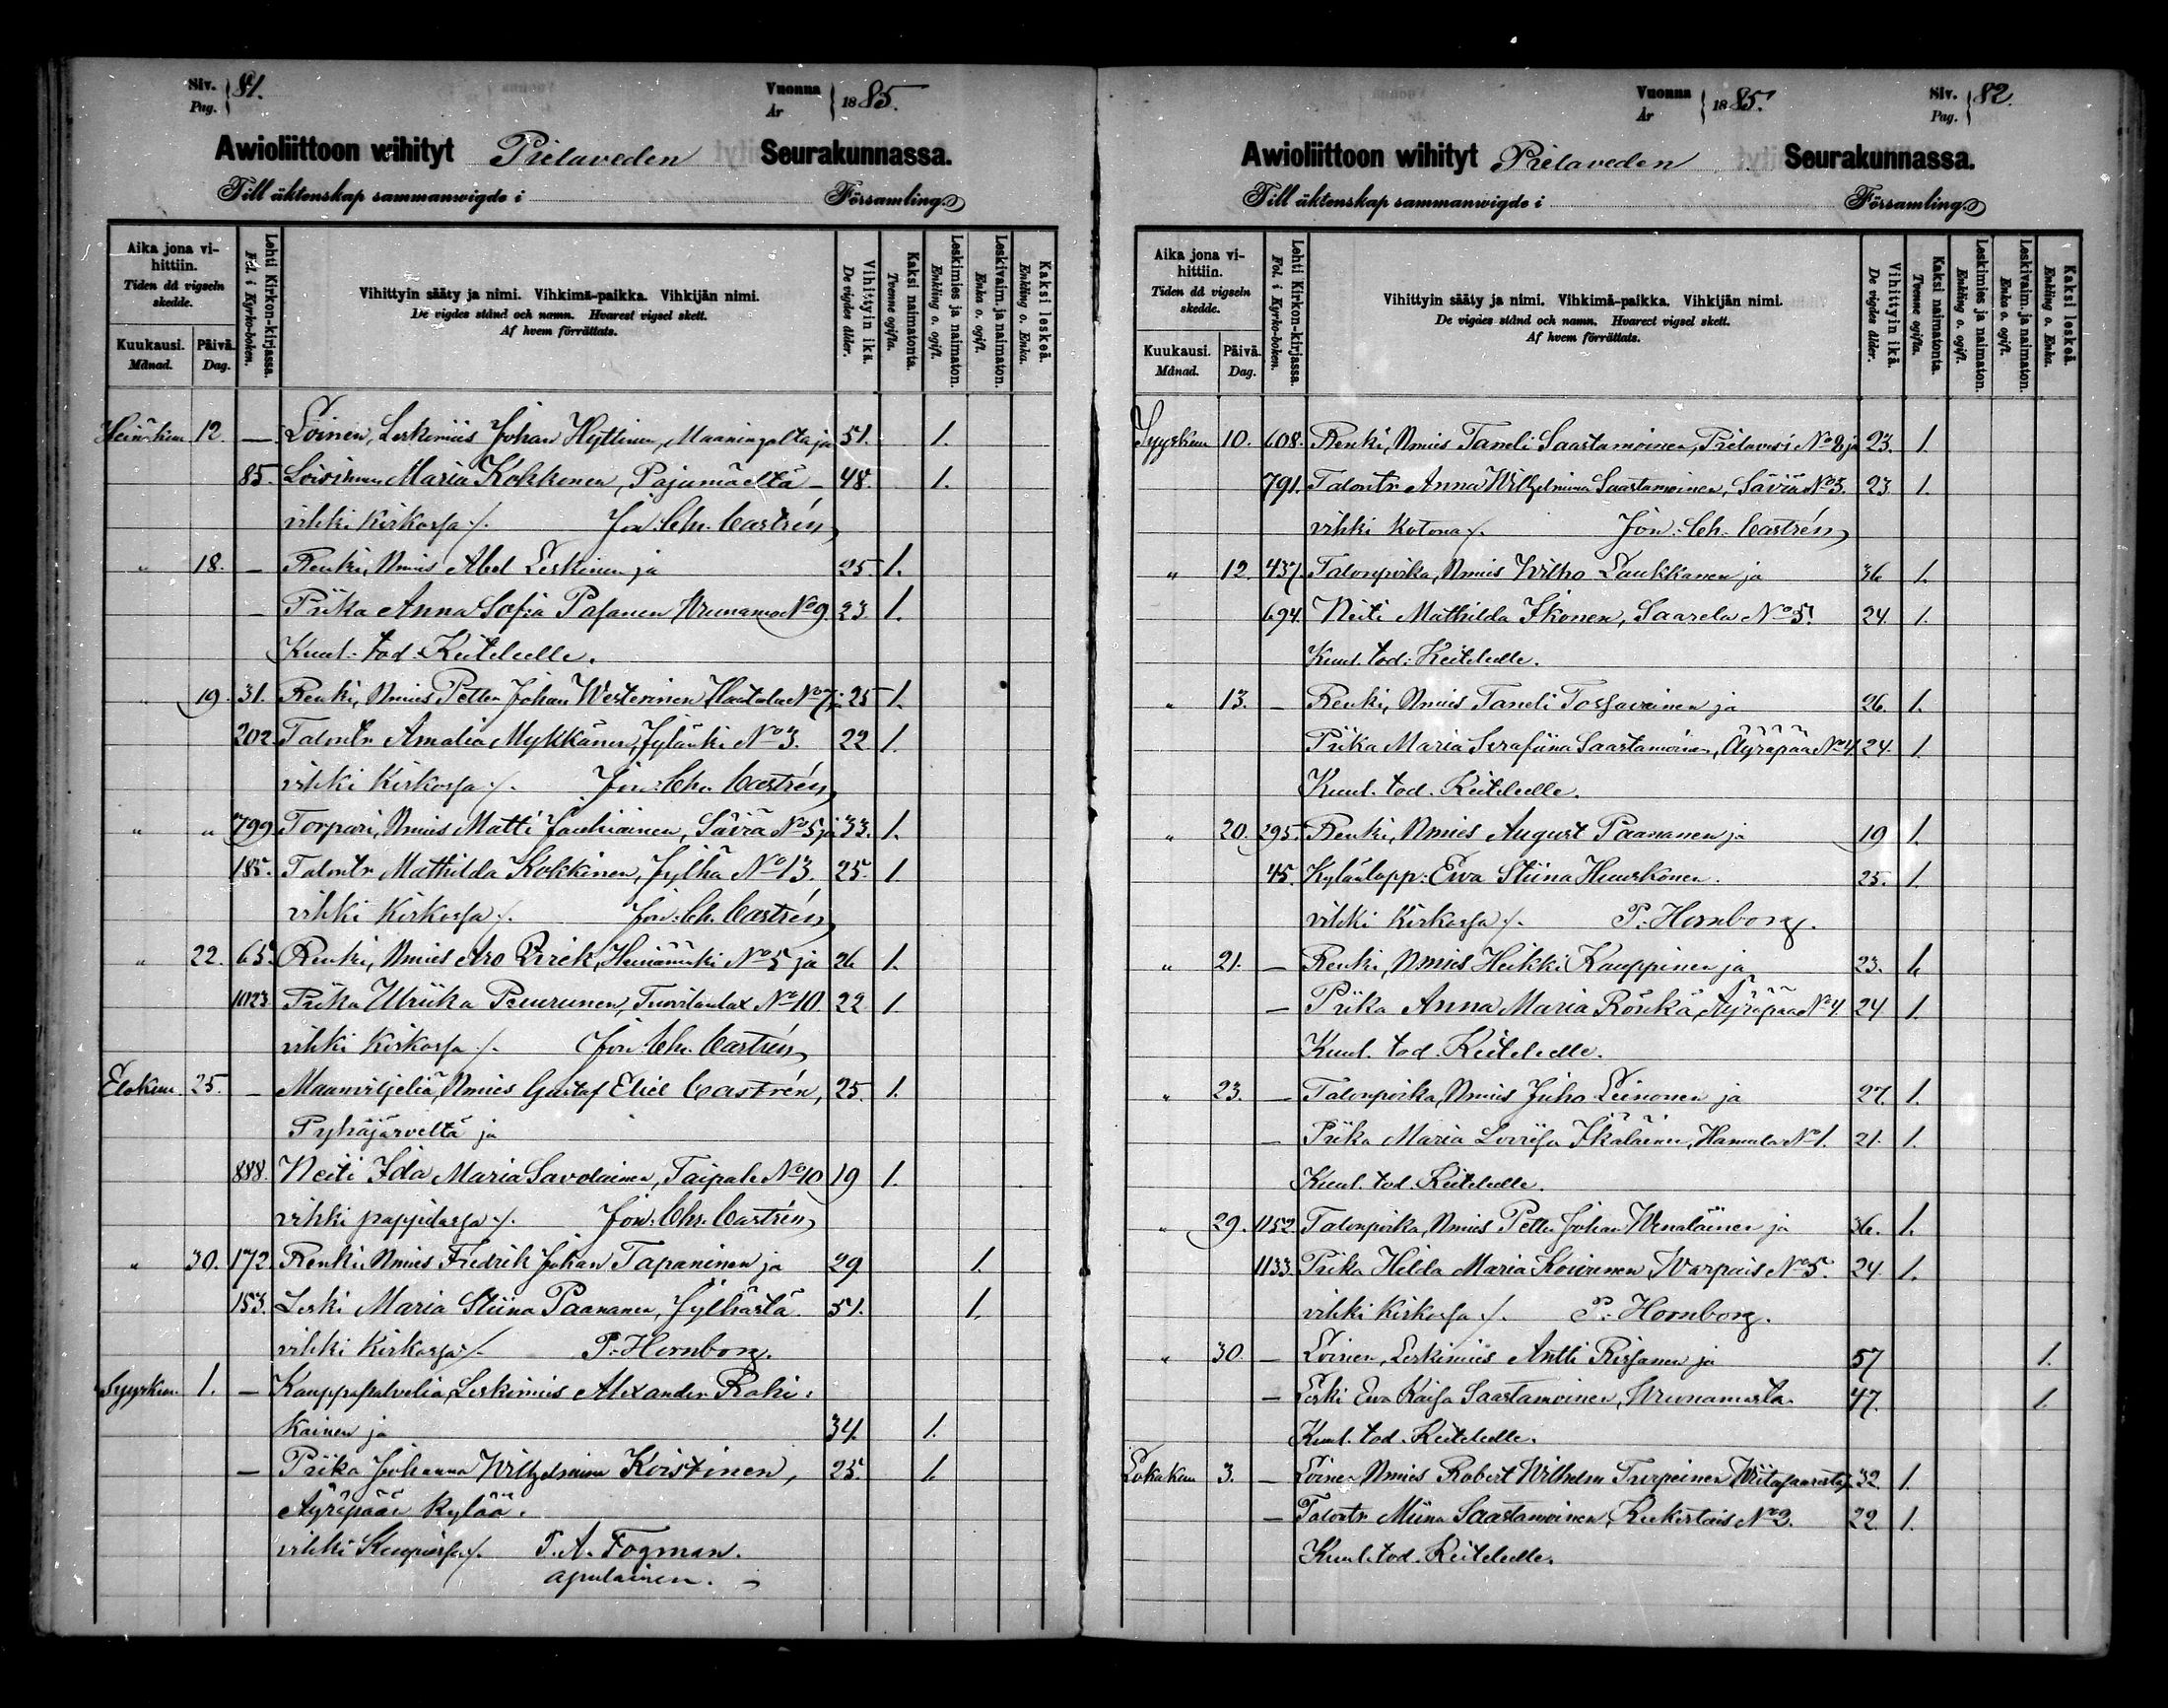 Siv. Pag. 81.
Vuonna År 1885.
Awioliittoon wihityt Pielaveden Seurakunnassa.
Till äktenskap sammanwigde i Församling.
Aika jona vihittiin. Tiden då vigseln skedde.
Kuukausi. Månad.
Päivä. Dag.
Lehti Kirkon-kirjassa. Fol. i Kyrko-boken.
Vihittyin sääty ja nimi. Vihkimä-paikka. Vihkijän nimi.
De vigdes stånd och namn. Hvarest vigsel skett.
Af hvem förrättats.
Vihittyin ikä. De vigdes ålder.
Kaksi naimatonta. Tvenne ogifta.
Leskimies ja naimaton. Enkling o. ogift.
Leskivaim. ja naimaton. Enka o. ogift.
Kaksi leskeä. Enkling o. Enka.
Heinäkuu 12. — Loinen, Leskimies Johan Hyttinen, Maaningalta ja 51. 1.
85. Loisinen Maria Kokkonen, Pajumäeltä — 48. 1.
vihki Kirkossa ⁒. Jon: Chr. Castrén
" 18. — Renki, Nmies Abel Leskinen ja 25. 1.
— Piika Anna Sofia Pasanen Wuonamo No 9. 23. 1.
Kuul. tod. Keiteleelle.
" 19. 31. Renki, Nmies Petter Johan Westerinen No 7 ja 25 1.
202. Talontr Amalia Mykkänen, Jylänki No 3. 22 1.
vihki Kirkossa ⁒. Jon: Chr. Castrén
" " 799. Torpari, Nmies Matti Jauhiainen, Säviä No 5 ja 33. 1.
185. Talontr Mathilda Kokkinen, Jylhä No 13. 25. 1.
vihki Kirkossa ⁒. Jon: Ch. Castrén
" 22. 65. Renki, Nmies Aro Pirek, Heinämäki No 5 ja 26 1.
1023. Piika Ulriika Puurunen, Tuovilanlax No 10. 22. 1.
vihki Kirkossa ⁒. Jon: Chr. Castrén
Elokuu 25. — Maanviljeliä, Nmies Gustaf Eliel Castrén, 25. 1.
Pyhäjärveltä ja
888. Neiti Ida Maria Savolainen, Taipale No 10 19 1.
vihki pappilassa ⁒. Jon: Chr. Castrén
" 30. 172. Renki, Nmies Fredrik Johan Tapaninen ja 29 1.
153. Leski Maria Stiina Paananen, Jylhästä 51. 1.
vihki Kirkossa ⁒ P. Hornborg.
Syyskuu 1. — Kauppapalvelia, Leskimies Alexander Roki:
kainen ja 34. 1.
— Piika Johanna Wilhelmina Koistinen, 25. 1.
Äyräpään kylää.
vihki Kuopiossa ⁒. T. A. Fogman.
apulainen. —
Vuonna År 1885.
Siv. Pag. 82.
Awioliittoon wihityt Pielaveden Seurakunnassa.
Till äktenskap sammanwigde i Församling.
Aika jona vihittiin. Tiden då vigseln skedde.
Kuukausi. Månad.
Päivä. Dag.
Lehti Kirkon-kirjassa. Fol. i Kyrko-boken.
Vihittyin sääty ja nimi. Vihkimä-paikka. Vihkijän nimi.
De vigdes stånd och namn. Hvarest vigsel skett.
Af hvem förrättats.
Vihittyin ikä. De vigdes ålder.
Kaksi naimatonta. Tvenne ogifta.
Leskimies ja naimaton. Enkling o. ogift.
Leskivaim. ja naimaton. Enka o. ogift.
Kaksi leskeä. Enkling o. Enka.
Syyskuu 10. 608. Renki, Nmies Taneli Saastamoinen, Pielavesi No 8 ja 23. 1.
791. Talontr Anna Wilhelmina Saastamoinen, Säviä No 3. 23 1.
vihki Kotona ⁒. Jon: Ch. Castrén
" 12. 437. Talonpoika, Nmies Wilho Laukkanen ja 36 1.
694. Neiti Mathilda Ikonen, Saarela No 5. 24. 1.
Kuul. tod: Keiteleelle.
" 13. — Renki, Nmies Taneli Tossavainen ja 26. 1.
Piika Maria Serafiina Saastamoinen, Äyräpää No 4. 24. 1.
Kuul. tod. Keiteleelle.
" 20. 295. Renki, Nmies August Paananen ja 19 1.
45. Kylänlapp: Ewa Stiina Huuskonen. 25. 1.
vihki Kirkossa ⁒. P. Hornborg.
" 21. — Renki, Nmies Heikki Kauppinen ja 23. 1.
— Piika Anna Maria Rönkä, Äyräpää No 4. 24 1.
Kuul. tod. Keiteleelle.
" 23. — Talonpoika, Nmies Juho Leinonen ja 27. 1.
— Piika Maria Lovisa Ikäläinen, Hamula No 1. 21. 1.
Kuul. tod. Keiteleelle.
" 29. 1152. Talonpoika, Nmies Petter Johan Wenäläinen ja 36. 1.
1133. Piika Hilda Maria Kouvunen, Warpais No 5. 24. 1.
vihki Kirkossa ⁒. P. Hornborg.
" 30. — Loinen, Leskimies Antti Rissanen ja 57 1.
— Leski Ewa Kaisa Saastamoinen, Wuonamosta. 47. 1.
Kuul. tod. Keiteleelle.
Lokakuu 3. — Loinen Nmies Robert Wilhelm Turpeinen Wiitasaarelta 32. 1.
— Talontr Miina Saastamoinen, No 2. 22. 1.
Kuul. tod. Keiteleelle.